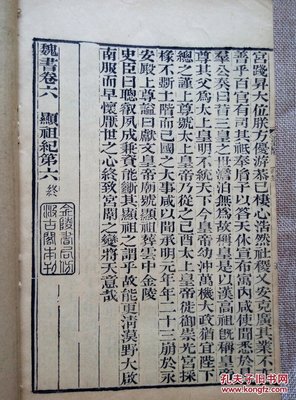 宮踐昇大位朕方優游恭己棲心浩然社稷乂安克廣其業不
善乎百官有司其祇奉胤子以答天休宣布寓內咸使聞悉於
羣公奏曰昔三皇之世澹泊無為故稱皇是以漢高祖既稱皇帝
尊其父為太上皇明不統天下今皇帝幼沖萬機大政猶宜陛下
總之謹上尊號太上皇帝乃從之己酉太上皇帝徙御崇光宮採
椽不斲土階而已國之大事咸以聞承明元年年二十三崩於永
安殿上尊諡曰獻文皇帝廟號顯祖葬雲中金陵
史臣曰聰叡夙成兼資能斷其顯祖之謂乎故能更清漠野大啟
南服而早懷厭世之心終致宮闈之變將天意哉
魏書卷六 顯祖紀第六 終
金陵書局仿
汲古閣本刊
孔夫子旧书网